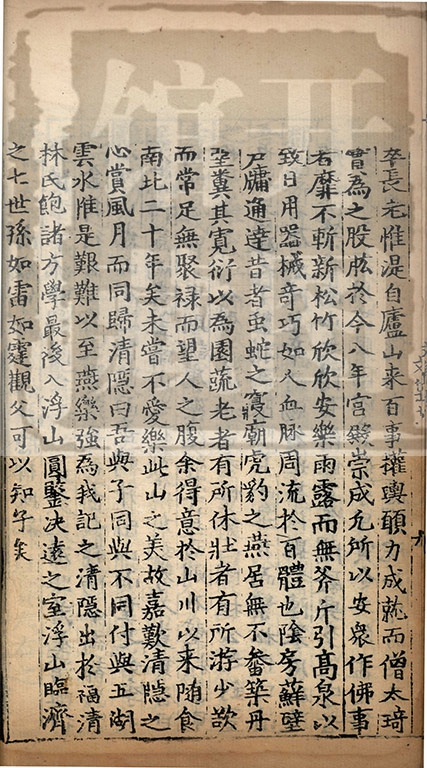 卒長老惟湜自廬山来百事權輿頤力成就而僧太琦
實為之股肱於今八年宮錣崇成凢所以安衆作佛事
者靡不斬新松竹欣欣安樂雨露而無斧斤引髙泉以
致日用器械竒巧如人血脉周流於百體也陰房蘇壁
戸牖通逹昔者虫蛇之𥨊廟虎豹之燕居無不畚築丹
堊糞其寛衍以為園蔬老者有所休壯者有所游少欲
而常足無聚禄而望人之腹余得意於山川以来随食
南北二十年矣未嘗不愛樂此山之美故嘉歎清隠之
心賞風月而同歸清隠曰吾與子同與不同付與五湖
雲水惟是艱難以至燕樂強為我記之清隠出於福清
林氏飽諸方學最後入浮山圓鑒决逺之室浮山臨濟
之七世孫如雷如霆觀父可以知子矣